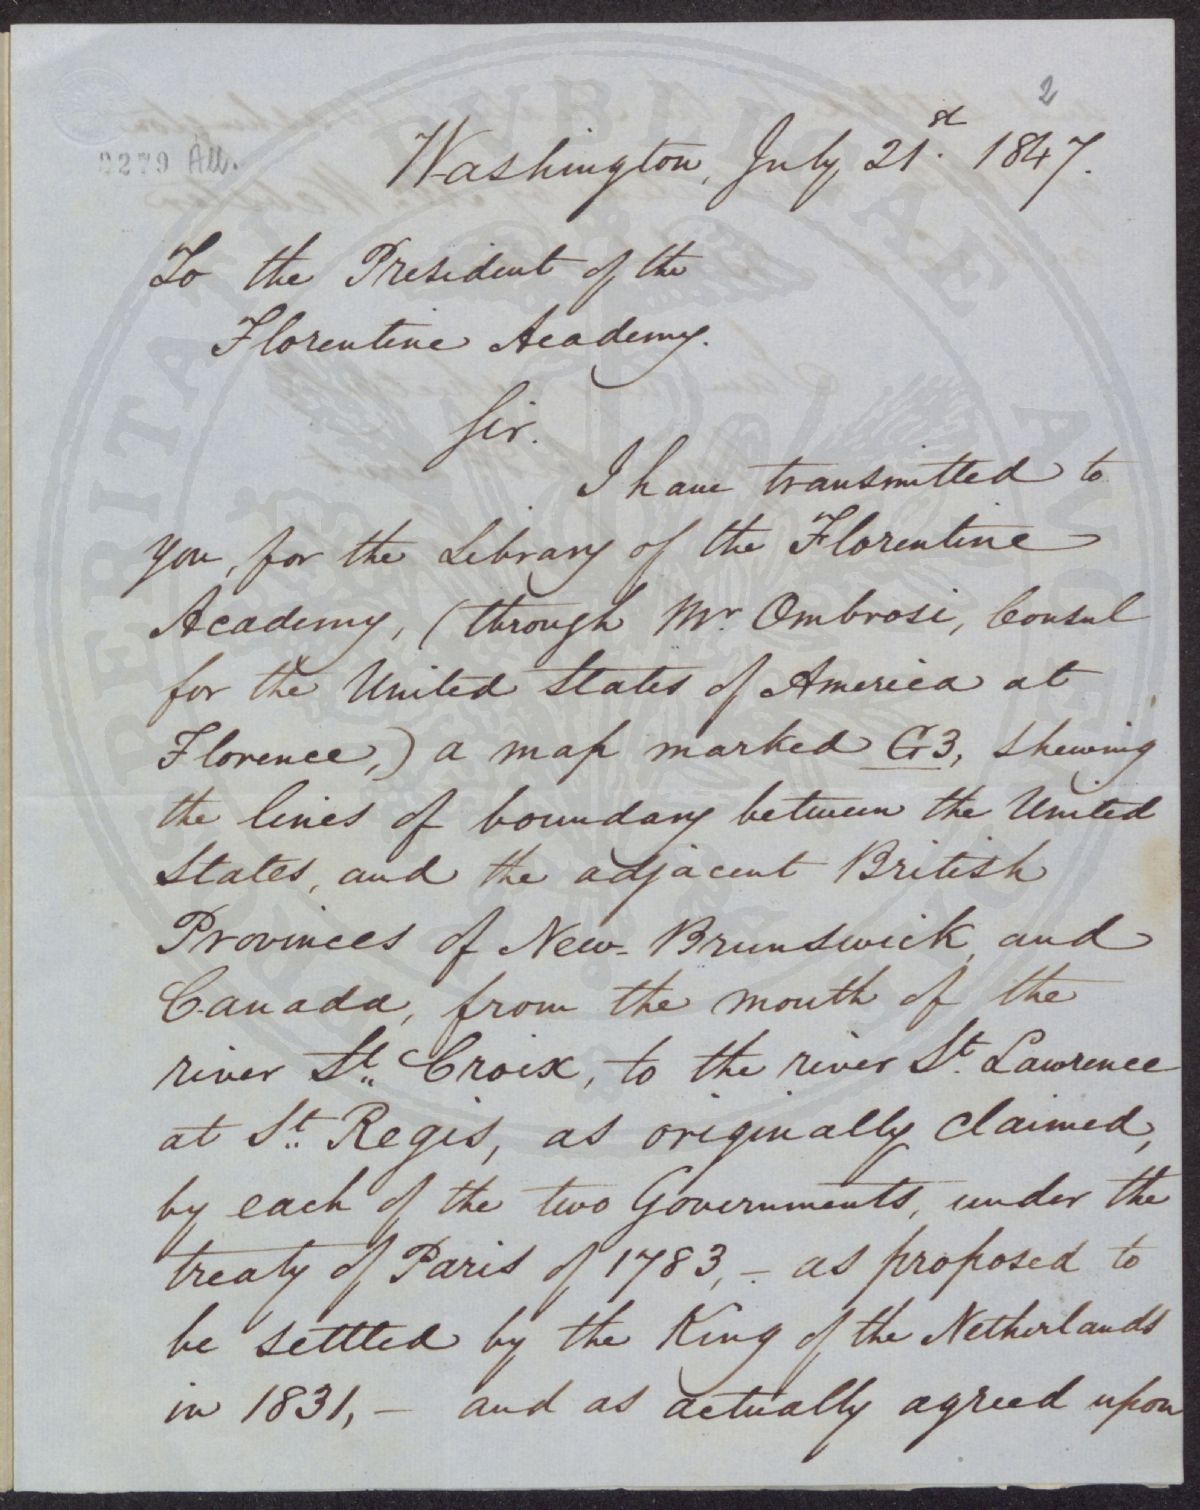 2
2279 All.
Washington, July 21st. 1847.
To the President of the
Florentine Academy.
Sir.
I have transmitted to
you, for the Library of the Florentine
Academy, (through Mr. Ombrosi, Consul
for the United States of America at
Florence,) a map marked G3, shewing
the lines of boundary between the United
States, and the adjacent British
Provinces of New-Brunswick and
Canada, from the mouth of the
river St. Croix, to the river St. Lawrence
at St. Regis, as originally claimed,
by each of the two Governments, under the
treaty of Paris of 1783, - as proposed to
be settled by the King of the Netherlands
in 1831, - and as actually agreed upon